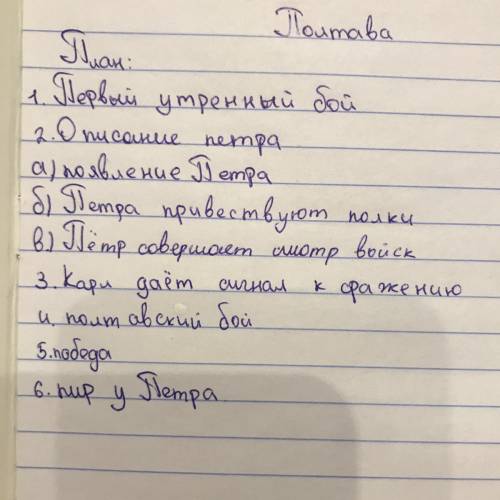 Полтава
План:
1. Первый утренный бой
2. Описание петра
а) появление Петра
б) Петра привествуют полки
в) Пётр совершает смотр войск
3. Карл даёт сигнал к сражению
4. полтавский бой
5. победа
6. пир у Петра